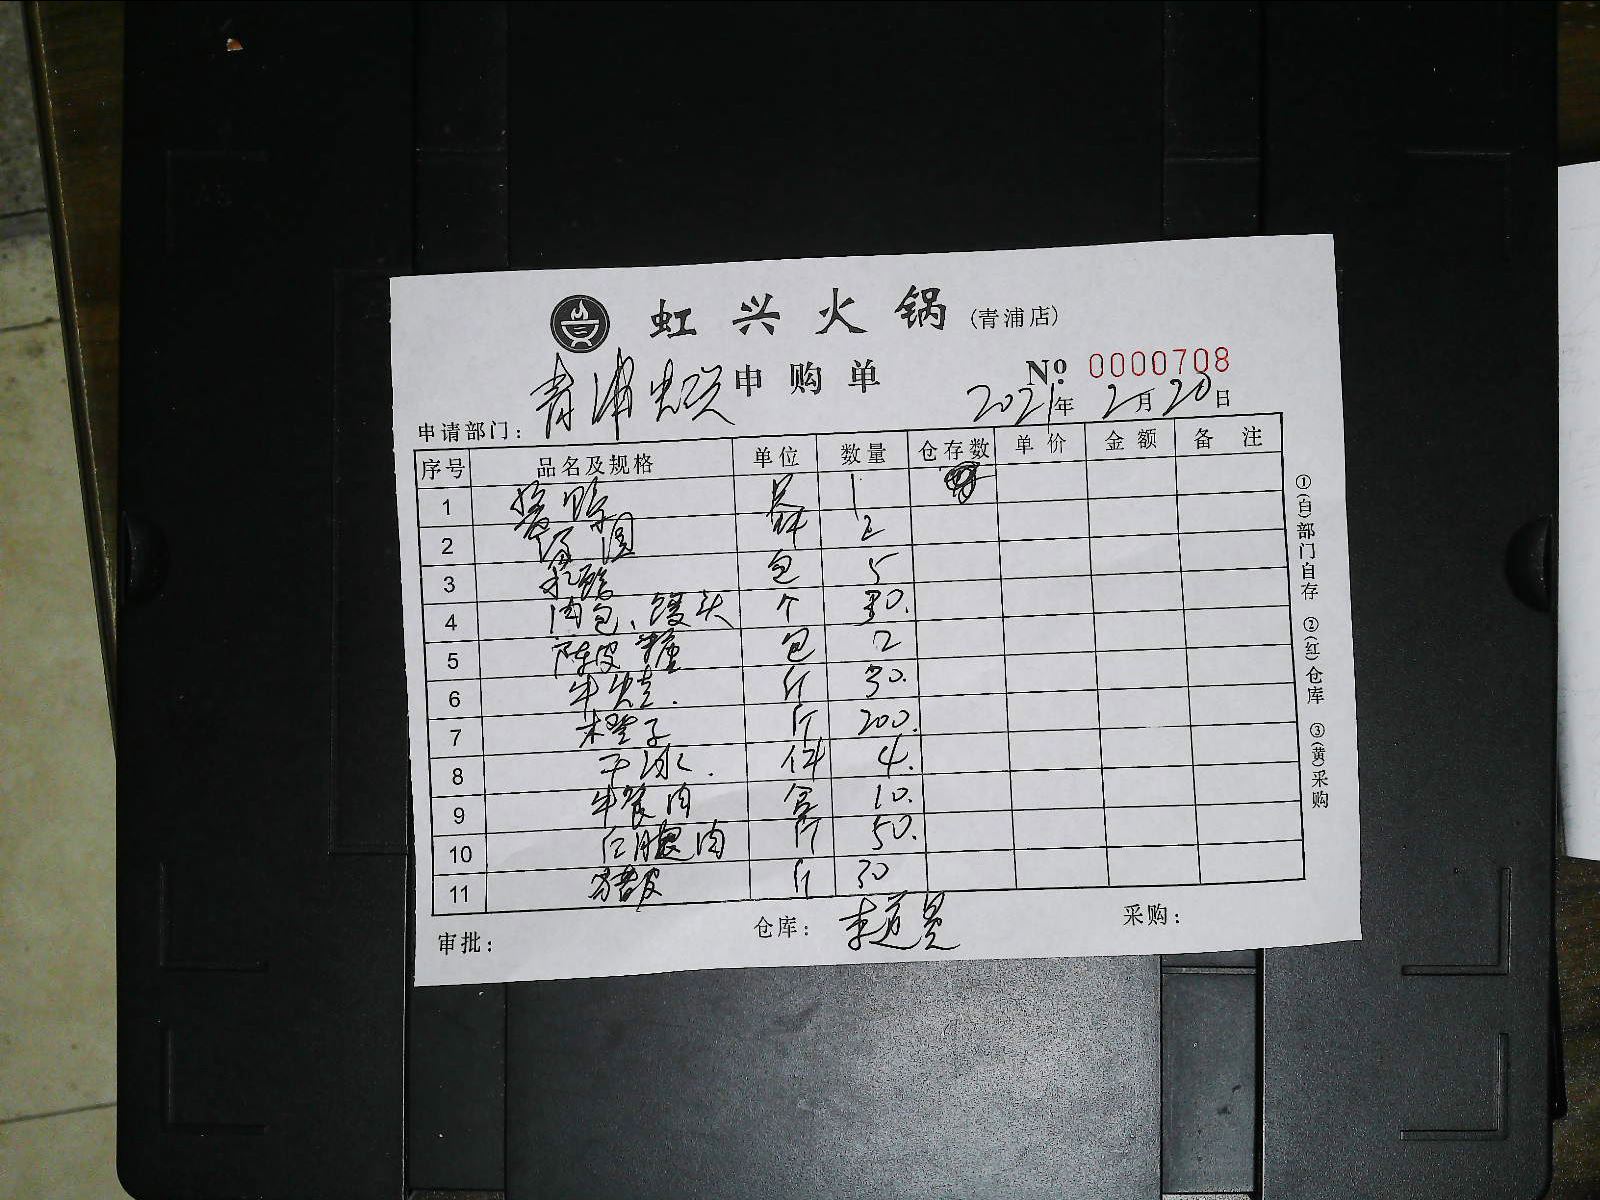 虹兴火锅 (青浦店)
申购单 № 0000708
申请部门： 青浦 2021年 2月 20日
序号 品名及规格 单位 数量 仓存数 单价 金额 备注
1 1
2 汤圆 件 2
3 包 5
4 肉包、馒头 个 30.
5 陈皮糖 包 2
6 牛蛙. 斤 30.
7 橙子 斤 200.
8 干冰. 件 4.
9 午餐肉 盒 10.
10 后腿肉 斤 50.
11 斤 30
审批： 仓库： 采购：
①(白)部门自存 ②(红)仓库 ③(黄)采购